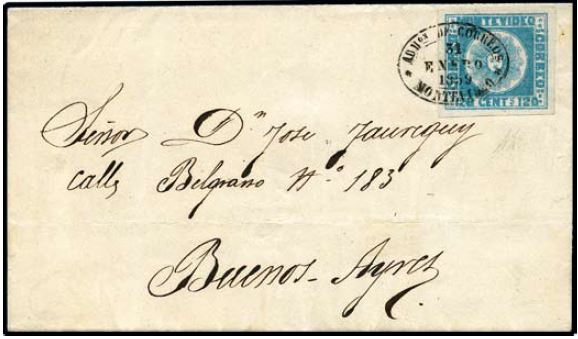 ADMon DE CORREOS
31
ENERO
1859
MONTEVIDEO
MONTEVIDEO
CORREO
120 CENTS 120
Señor Dn Jose Jaureguy
calle Belgrano No. 183
Buenos-Ayres